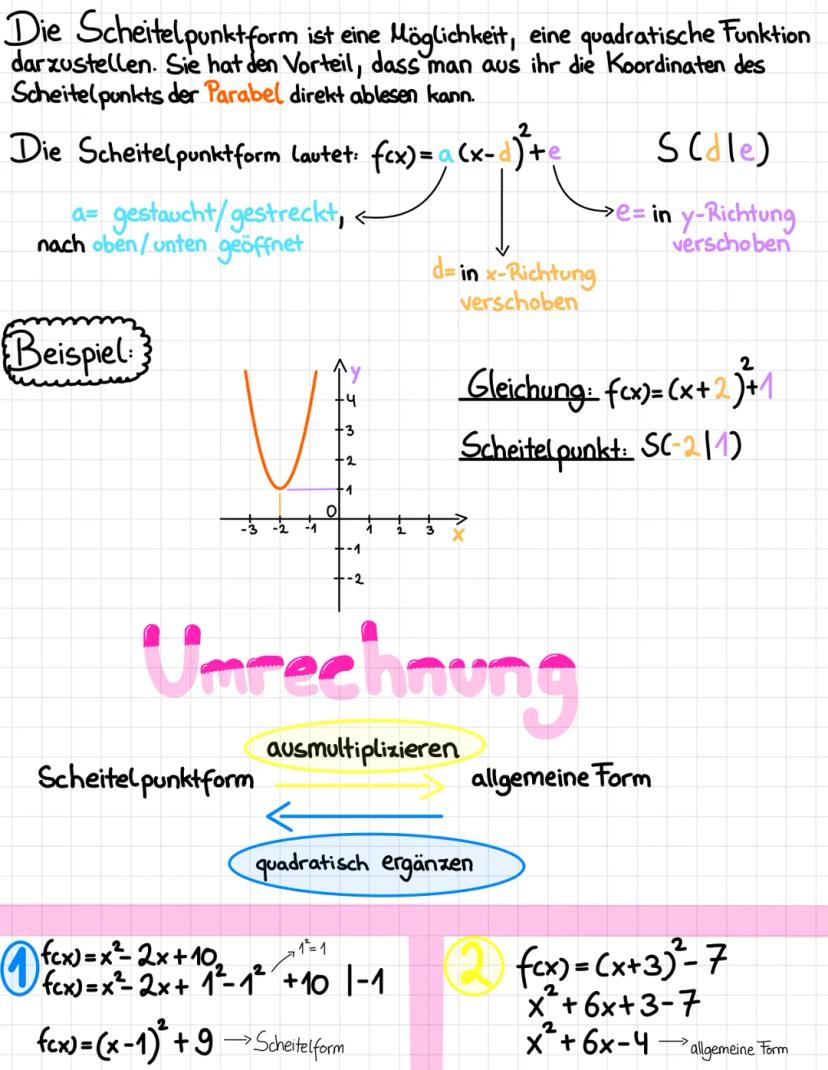 Die Scheitelpunktform ist eine Möglichkeit, eine quadratische Funktion
darzustellen. Sie hat den Vorteil, dass man aus ihr die Koordinaten des
Scheitelpunkts der Parabel direkt ablesen kann.
Die Scheitelpunktform lautet: f(x)=a(x-d)²+e S(d|e)
a= gestaucht/gestreckt,
nach oben/unten geöffnet
e= in y-Richtung
verschoben
d= in x-Richtung
verschoben
Beispiel:
y
4
3
2
1
0
-3 -2 -1 1 2 3 x
-1
-2
Gleichung: f(x)=(x+2)²+1
Scheitelpunkt: S(-2|1)
Umrechnung
ausmultiplizieren
Scheitelpunktform allgemeine Form
quadratisch ergänzen
1 f(x)=x²-2x+10
1²=1
f(x)=x²-2x+1²-1²+10 |-1
f(x)=(x-1)²+9 → Scheitelform
2 f(x)=(x+3)²-7
x²+6x+3-7
x²+6x-4 → allgemeine Form